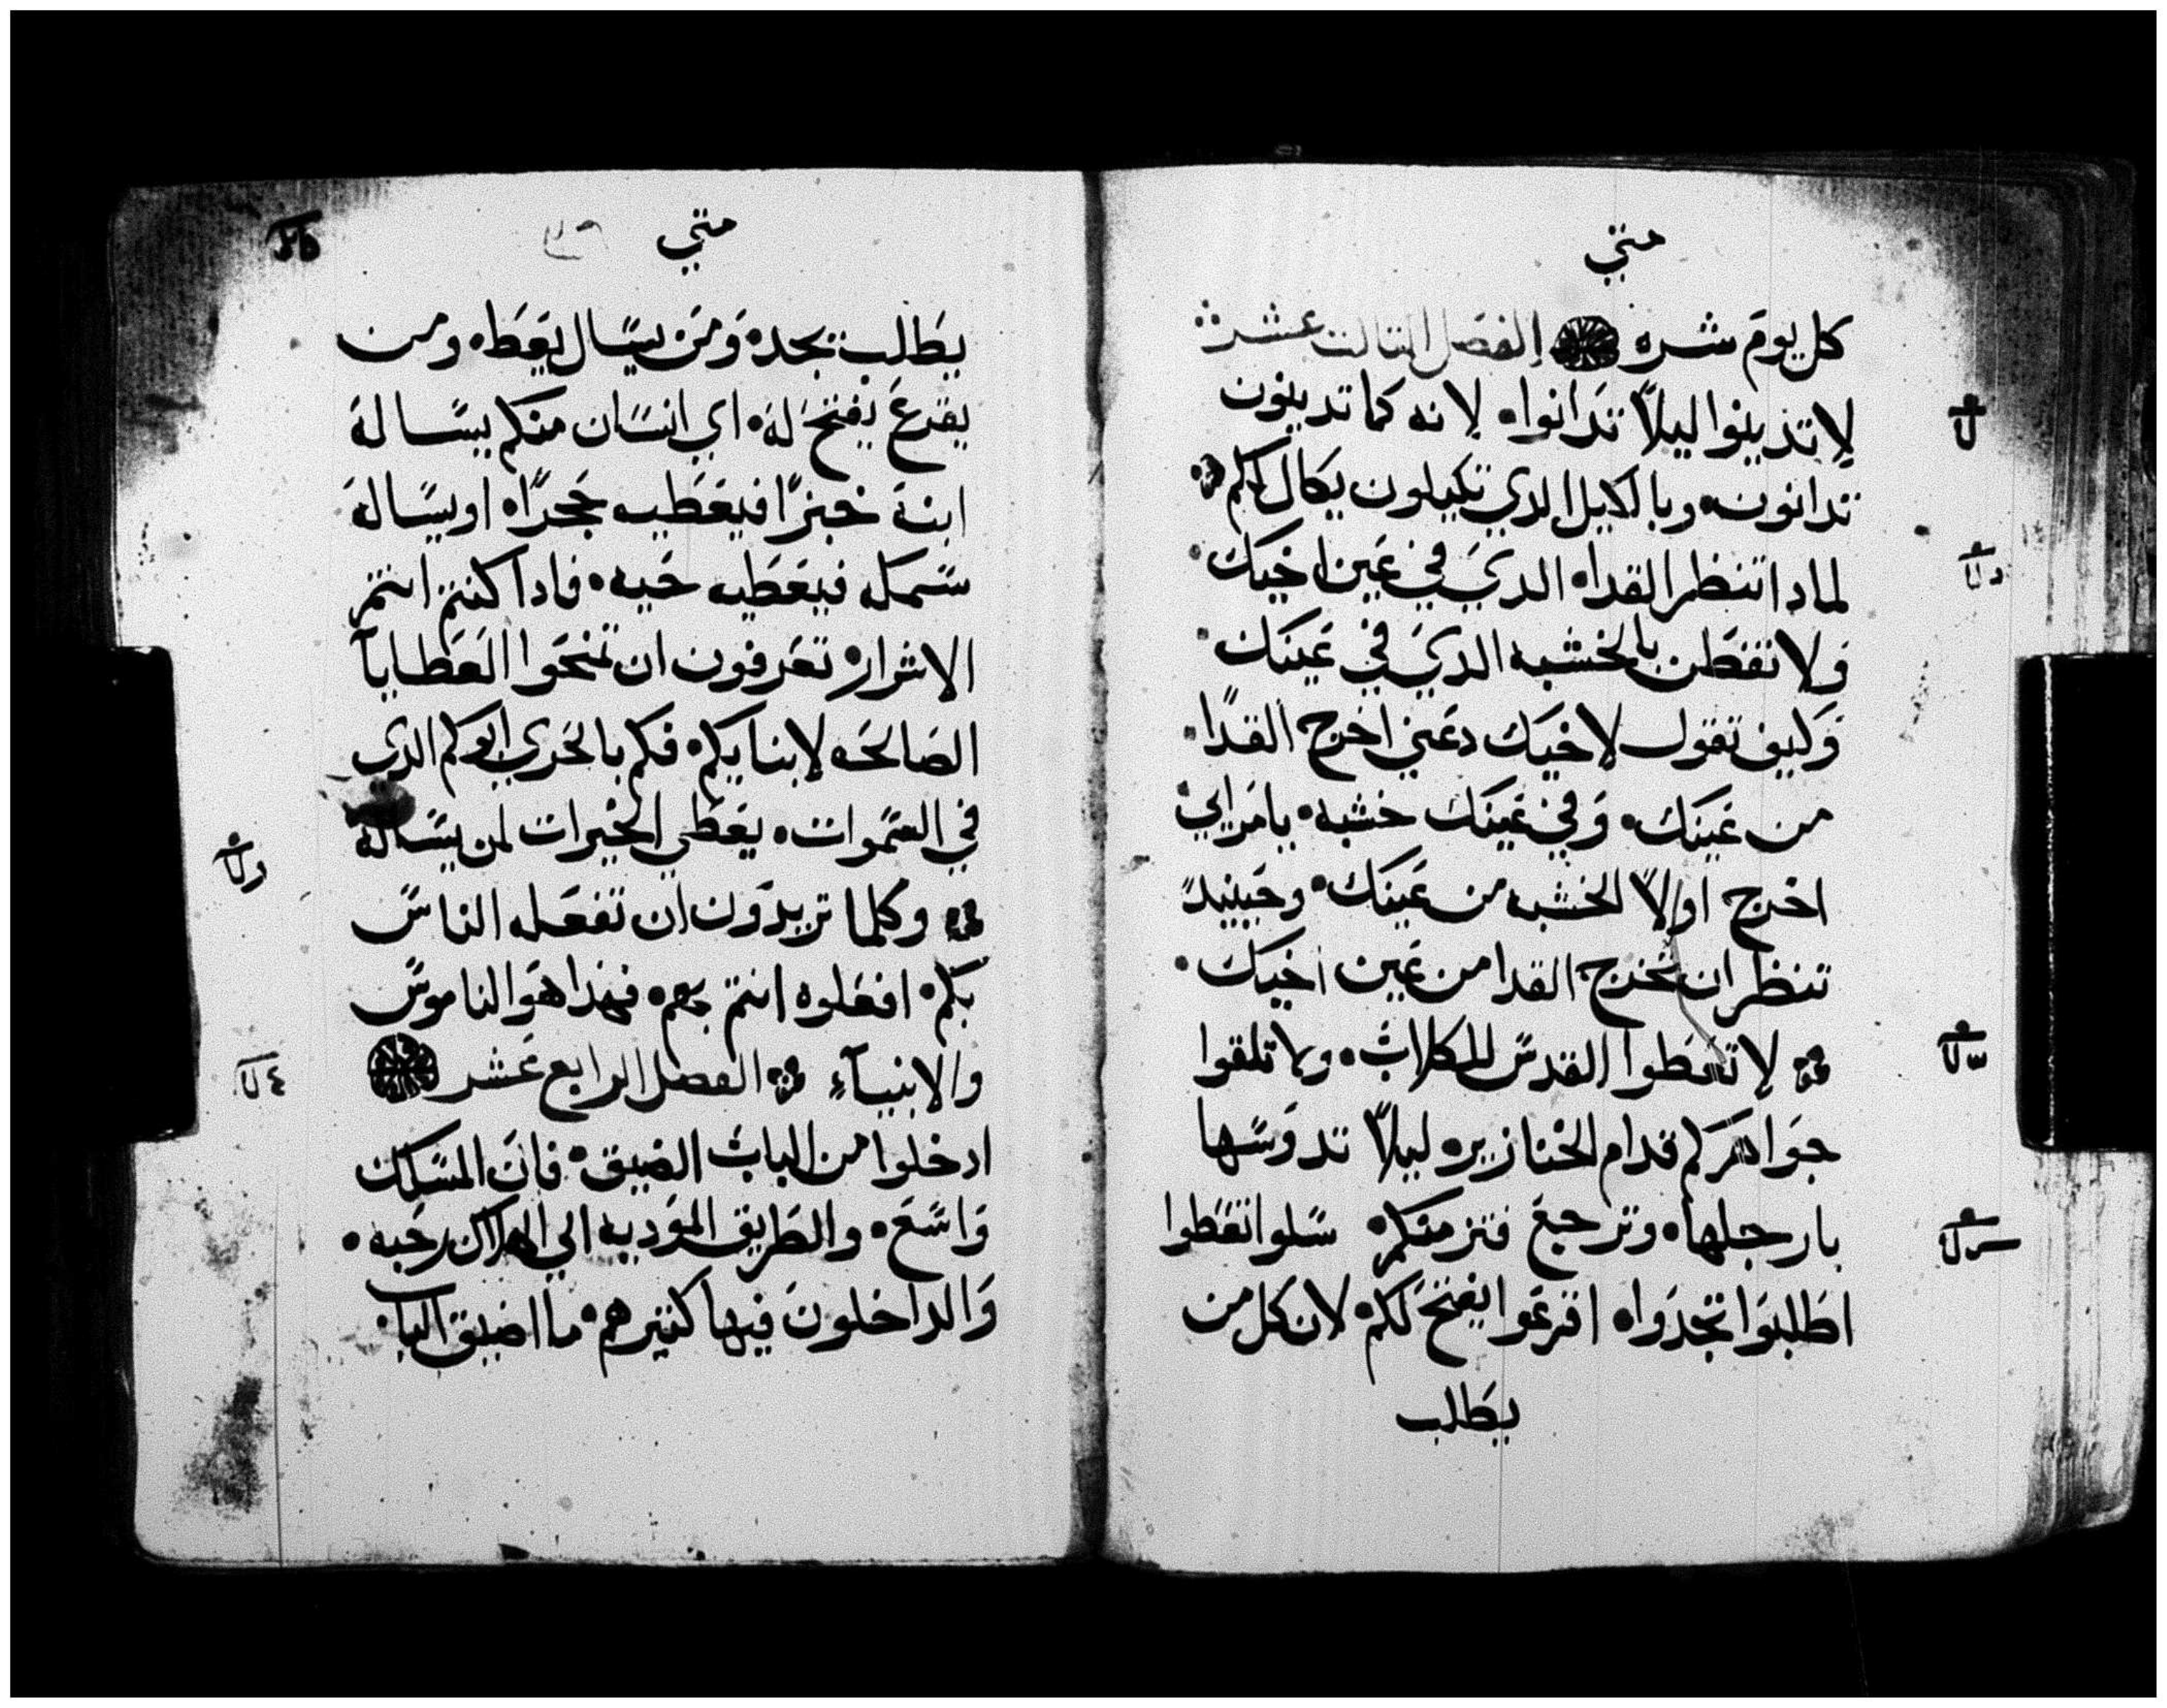 متي
كل يوم شره الفصل الثالث عشر
لا تدينوا ليلاً تدانوا لانه كما تدينون
تدانون وبالكيل الدي تكيلون يكال لكم
لمادا تنظر القدا الدي في عين اخيك
ولا تفطن بالخشبه الدي في عينك
وكيف تقول لاخيك دعني اخرج القدا
من عينك وفي عينك خشبه يامرايي
اخرج اولاً الخشبه من عينك وحينيدً
تنظر ان تخرج القدا من عين اخيك
لا تعطوا القدس للكلاب ولا تلقوا
جواهركم قدام الخنازير ليلاً تدوسها
بارجلها وترجع فتزمقكم سلوا تعطوا
اطلبوا تجدوا اقرعوا يفتح لكم لان كل من
يطلب
متي
يطلب يجد ومن يسال يعطا ومن
يقرع يفتح له اي انسان منكم يساله
ابنه خبزًا فيعطيه حجرًا او يساله
سمكه فيعطيه حيه فادا كنتم انتم
الاشرار تعرفون ان تمنحوا العطايا
الصالحه لابنايكم فكم بالحري ابوكم الدي
في السموات يعطي الخيرات لمن يساله
وكلما تريدون ان تفعله الناس
بكم افعلوه انتم بهم فهدا هو الناموس
والانبياء الفصل الرابع عشر
ادخلوا من الباب الضيق فان المسلك
واسع والطريق الموديه الي الهلاك رحبه
والداخلون فيها كثيرهم ما اضيق الباب